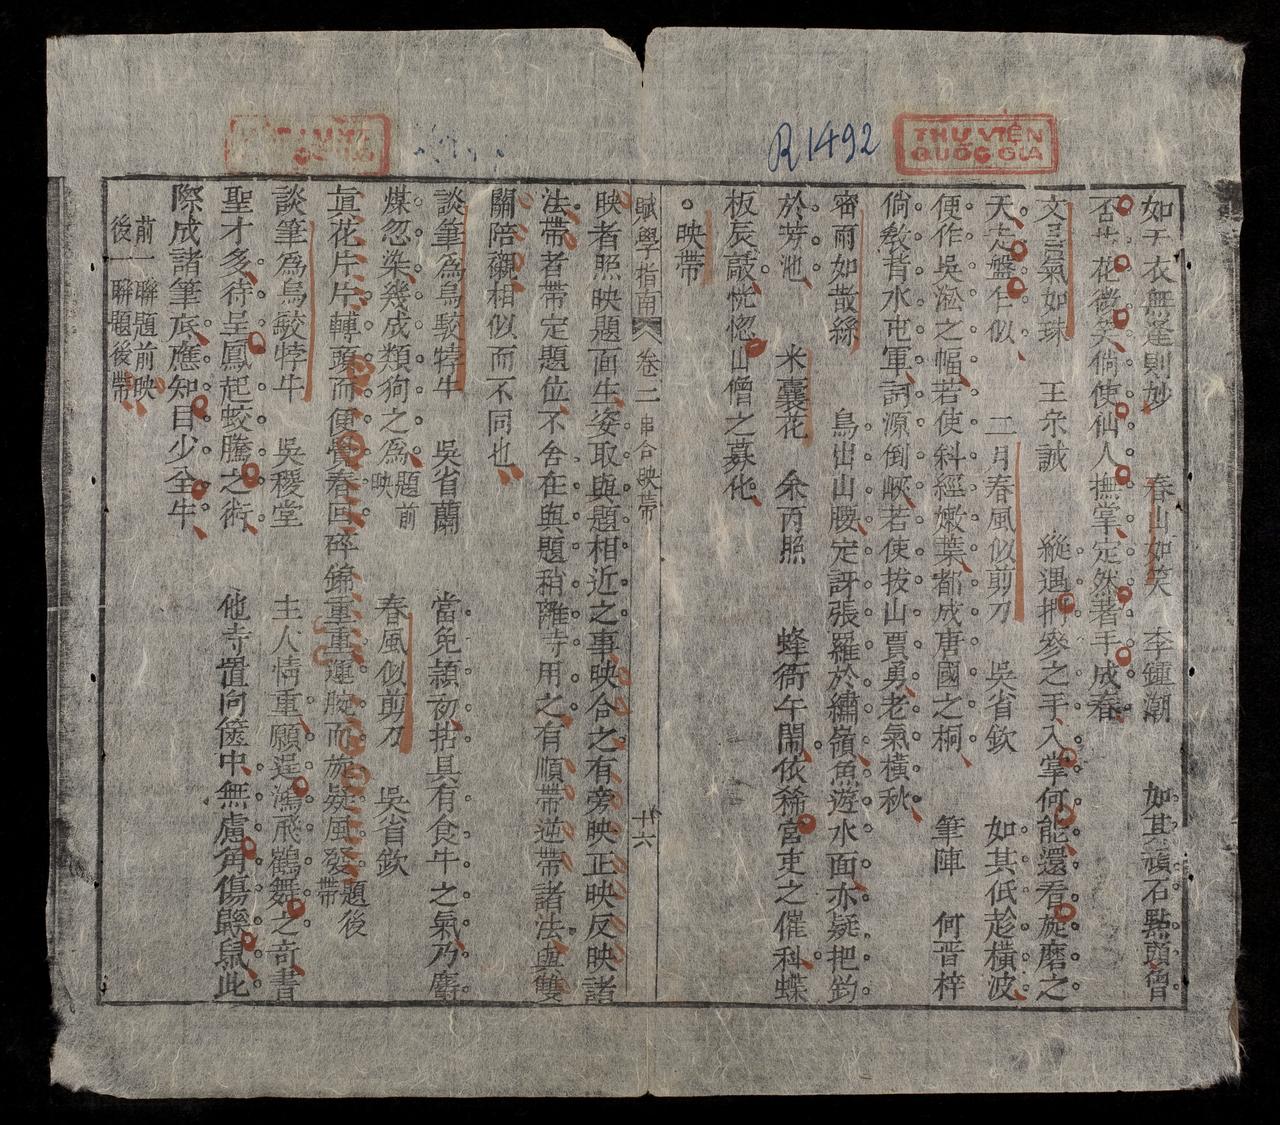 R1492
THƯ VIỆN
QUỐC GIA
如天衣無縫則妙　春山如笑　李鍾潮　如其頑石點頭曾
否共花微笑倘使仙人撫掌定然著手成春
文氣如珠　王永誠　縱遇捫參之手入掌何能還看旋磨之
天走盤乍似　二月春風似剪刀　吳省欽　如其低趁橫波
便作吳淞之幅若使斜經嫩葉都成唐國之桐　筆陣　何晋梓
倘敎背水屯軍詞源倒峽若使拔山賈勇老氣橫秋
密雨如散絲　鳥出山腰定訝張羅於繡嶺魚遊水面亦疑把釣
於芳池　米囊花　余丙照　蜂衙午閙依稀宮吏之催科蝶
板辰敲恍惚山僧之募化
映帶
賦學指南　卷二　串合映帶　十六
映者照映題面生姿取與題相近之事映合之有旁映正映反映諸
法帶者帶定題位不令在與題稍離等用之有順帶逆帶諸法與雙
關陪襯相似而不同也
談筆爲烏駮牸牛　吳省蘭　當兔穎初拈具有食牛之氣乃麝
煤忽染幾成類狗之爲題前映　春風似剪刀　吳省欽
眞花片片轉頭而便覺春回碎錦重重運腕而旋疑風發題後帶
談筆爲烏駮牸牛　吳稷堂　主人情重願逞鴻飛鶴舞之奇書
聖才多待呈鳳起蛟騰之術　他時置向篋中無慮角傷鼷鼠此
際成諸筆底應知目少全牛
前一聯題前映
後一聯題後帶